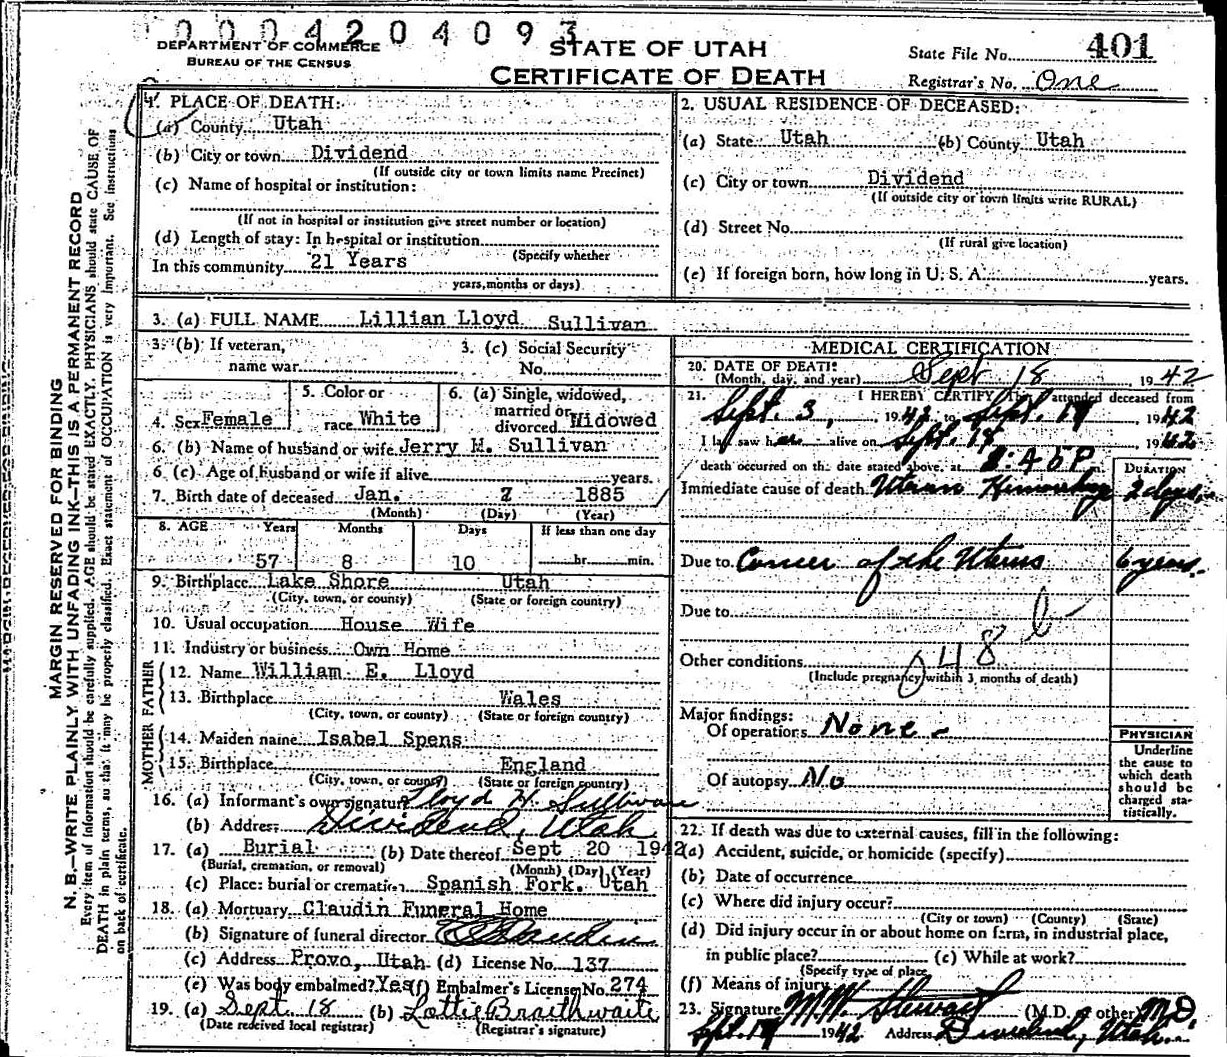 0004204093
DEPARTMENT OF COMMERCE
BUREAU OF THE CENSUS
STATE OF UTAH
CERTIFICATE OF DEATH
State File No. 401
Registrar's No. One
MARGIN RESERVED FOR BINDING
N. B.—WRITE PLAINLY WITH UNFADING INK—THIS IS A PERMANENT RECORD
Every item of information should be carefully supplied. AGE should be stated EXACTLY. PHYSICIANS should state CAUSE OF
DEATH in plain terms, so that it may be properly classified. Exact statement of OCCUPATION is very important. See instructions
on back of certificate.
1. PLACE OF DEATH:
(a) County Utah
(b) City or town Dividend
(If outside city or town limits name Precinct)
(c) Name of hospital or institution:
(If not in hospital or institution give street number or location)
(d) Length of stay: In hospital or institution
(Specify whether
In this community 21 Years
years, months or days)
2. USUAL RESIDENCE OF DECEASED:
(a) State Utah (b) County Utah
(c) City or town Dividend
(If outside city or town limits write RURAL)
(d) Street No.
(If rural give location)
(e) If foreign born, how long in U. S. A. years.
3. (a) FULL NAME Lillian Lloyd Sullivan
3. (b) If veteran, name war
3. (c) Social Security No.
4. Sex Female
5. Color or race White
6. (a) Single, widowed, married or divorced Widowed
6. (b) Name of husband or wife Jerry M. Sullivan
6. (c) Age of husband or wife if alive years.
7. Birth date of deceased Jan. 1885
(Month) (Day) (Year)
8. AGE Years Months Days If less than one day
57 8 10 hr. min.
9. Birthplace Lake Shore Utah
(City, town, or county) (State or foreign country)
10. Usual occupation House Wife
11. Industry or business Own Home
FATHER
12. Name William E. Lloyd
13. Birthplace Wales
(City, town, or county) (State or foreign country)
MOTHER
14. Maiden name Isabel Spens
15. Birthplace England
(City, town, or county) (State or foreign country)
16. (a) Informant's own signature Lloyd H. Sullivan
(b) Address Dividend, Utah
17. (a) Burial (b) Date thereof Sept 20 1942
(Burial, cremation, or removal) (Month) (Day) (Year)
(c) Place: burial or cremation Spanish Fork. Utah
18. (a) Mortuary Claudin Funeral Home
(b) Signature of funeral director Claudin
(c) Address Provo, Utah (d) License No. 137
(e) Was body embalmed? Yes (f) Embalmer's License No. 274
19. (a) Sept. 18 (b) Lottie Braithwaite
(Date received local registrar) (Registrar's signature)
MEDICAL CERTIFICATION
20. DATE OF DEATH:
(Month, day, and year) Sept 18, 1942
21. I HEREBY CERTIFY That I attended deceased from
Sept. 3, 1942 to Sept. 1942
I last saw her alive on Sept. 18 1942
death occurred on the date stated above, at :45 P m.
DURATION
Immediate cause of death Uteran Hemorrhage 2 days
Due to Cancer of the Uterus 6 years.
Due to
Other conditions 48 b
(Include pregnancy within 3 months of death)
Major findings:
Of operations None
Of autopsy No
PHYSICIAN
Underline
the cause to
which death
should be
charged sta-
tistically.
22. If death was due to external causes, fill in the following:
(a) Accident, suicide, or homicide (specify)
(b) Date of occurrence
(c) Where did injury occur?
(City or town) (County) (State)
(d) Did injury occur in or about home on farm, in industrial place,
in public place? (e) While at work?
(Specify type of place
(f) Means of injury
23. Signature M. W. Stewart (M.D. or other) M.D.
Sept. 1942 Address Dividend, Utah.